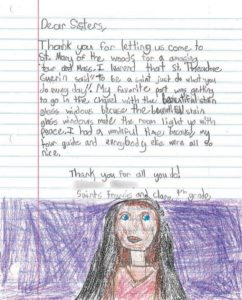 Dear Sisters,
Thank you for letting us come to
St. Mary of the woods for a amazing
tour and Mass. I learend that St. Theodore
Guerin said "To be a saint just do what you
do every day". My favorite part was getting
to go in the chapel with the beautiful stain
glass windows because the beautiful stain
glass windows made the room light up with
peace. I had a wonderful time
tour guide and everybody else were all so
nice.
Thank you for all you do!
Saints Francis and Clare, 4th grade